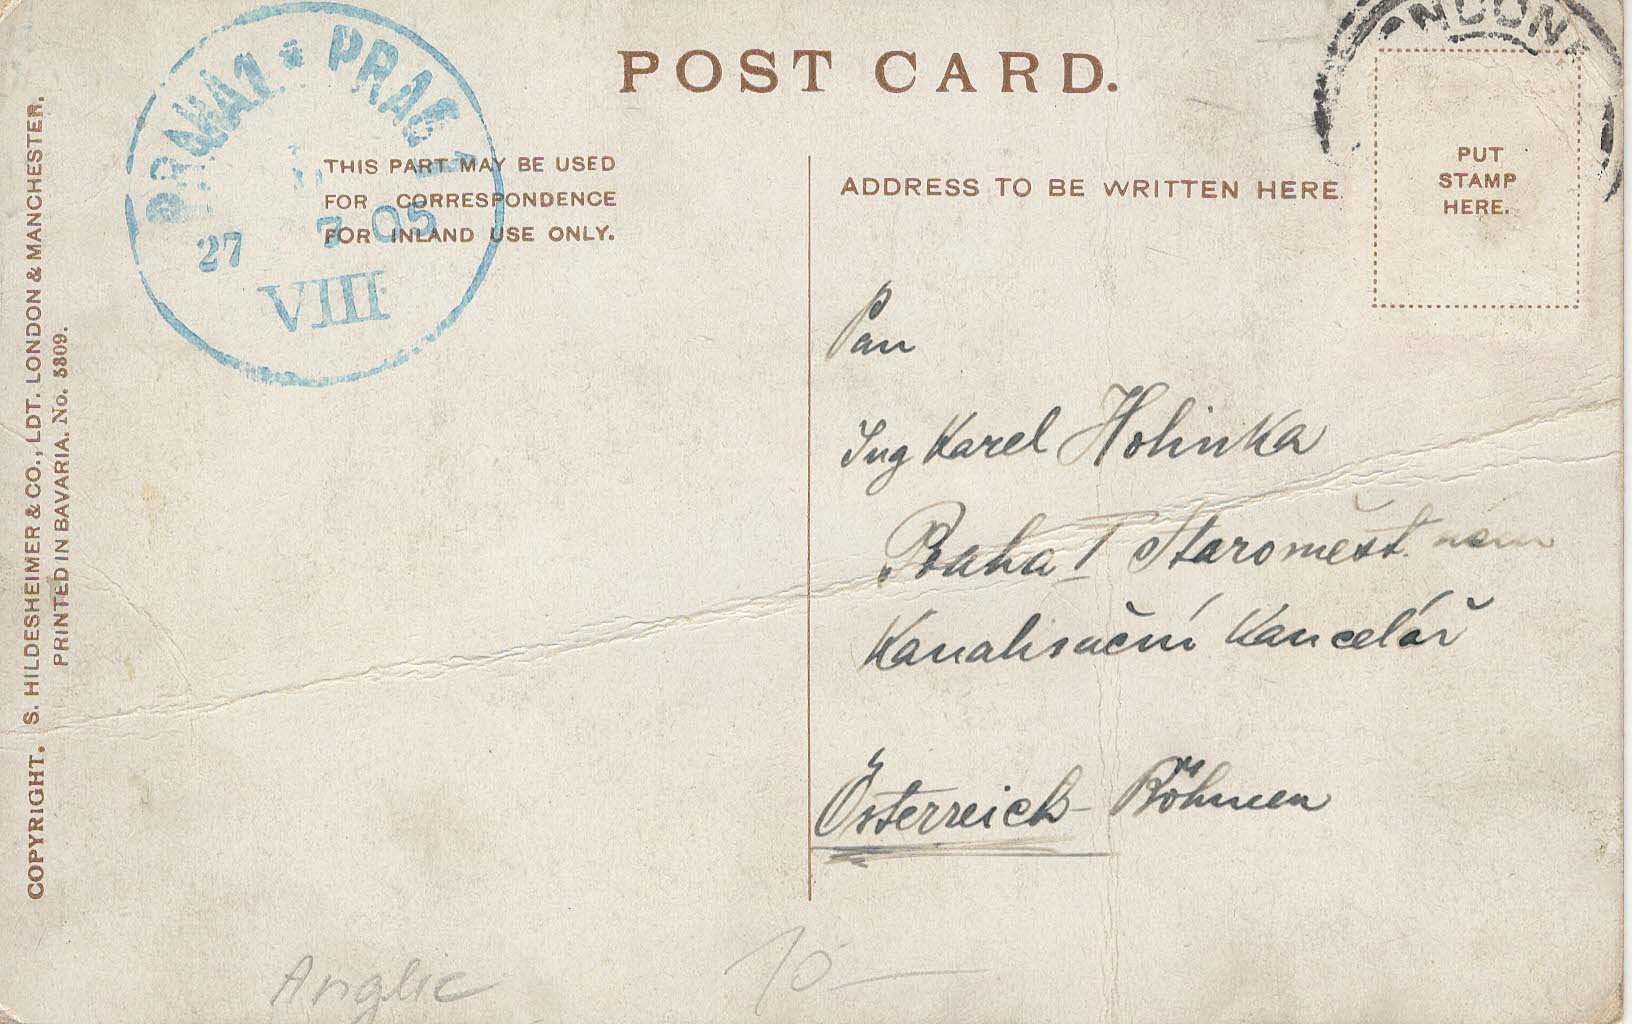 POST CARD.
PRAHA 1 * PRAG 1
27 3 05
VIII
LONDON
THIS PART MAY BE USED
FOR CORRESPONDENCE
FOR INLAND USE ONLY.
ADDRESS TO BE WRITTEN HERE.
PUT
STAMP
HERE.
Pan
Ing Karel Holinka
Praha I Staroměst. nám
Kanalisační Kancelář
Österreich - Böhmen
COPYRIGHT. S. HILDESHEIMER & CO., LDT. LONDON & MANCHESTER.
PRINTED IN BAVARIA. No. 5309.
Anglie
10-